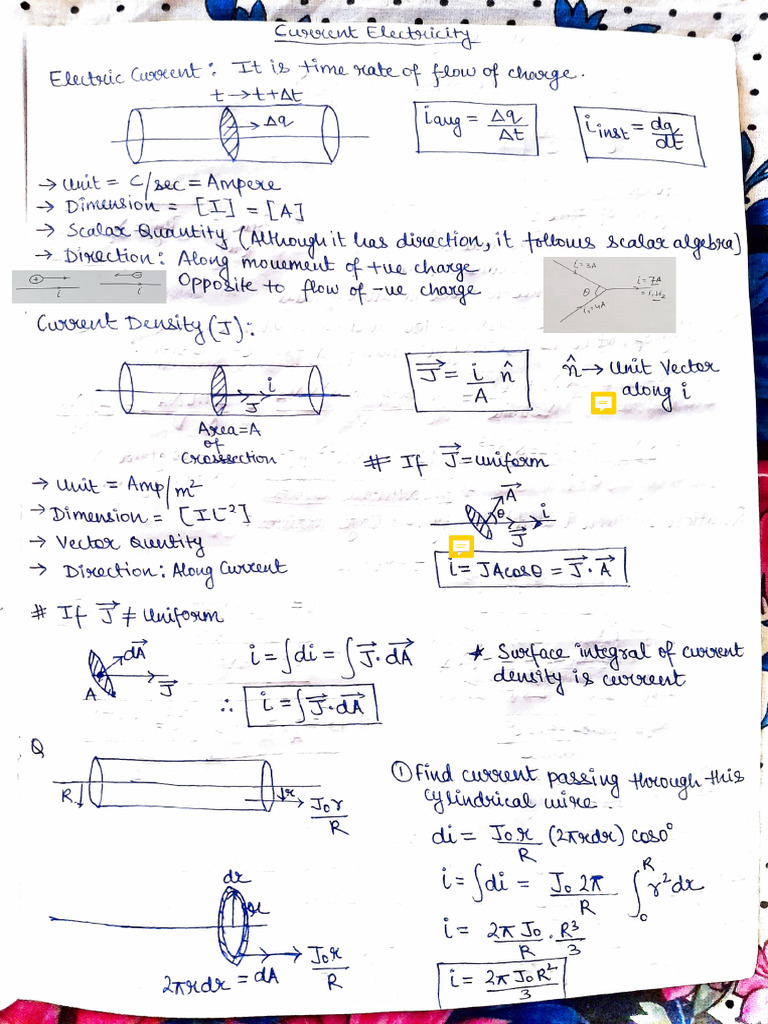 Current Electricity
Electric Current: It is time rate of flow of charge.
t→t+Δt
→Δq
i avg = Δq/Δt
i inst = dq/dt
→ Unit = C/sec = Ampere
→ Dimension = [I] = [A]
→ Scalar Quantity (Although it has direction, it follows scalar algebra)
→ Direction: Along movement of +ve charge
Opposite to flow of -ve charge
+ → i
- i
i=3A
θ
i=7A
Current Density (J):
i
J
Area=A
of
Crosssection
J⃗ = i/A n̂
n̂ → Unit Vector
along i
→ Unit = Amp/m²
→ Dimension = [IL⁻²]
→ Vector Quntity
→ Direction: Along Current
# If J⃗ = uniform
A⃗
θ
i
J⃗
i = JAcosθ = J⃗·A⃗
# If J⃗ ≠ Uniform
dA⃗
A
J⃗
i = ∫di = ∫J⃗·dA⃗
∴ i = ∫J⃗·dA⃗
* Surface integral of current
density is current
Q
R
r
J₀r/R
① Find current passing through this
cylindrical wire.
di = J₀r/R (2πrdr) cos0°
i = ∫di = J₀2π/R ∫₀ᴿ r²dr
i = 2πJ₀/R · R³/3
i = 2πJ₀R²/3
dr
r
J₀r/R
2πrdr = dA